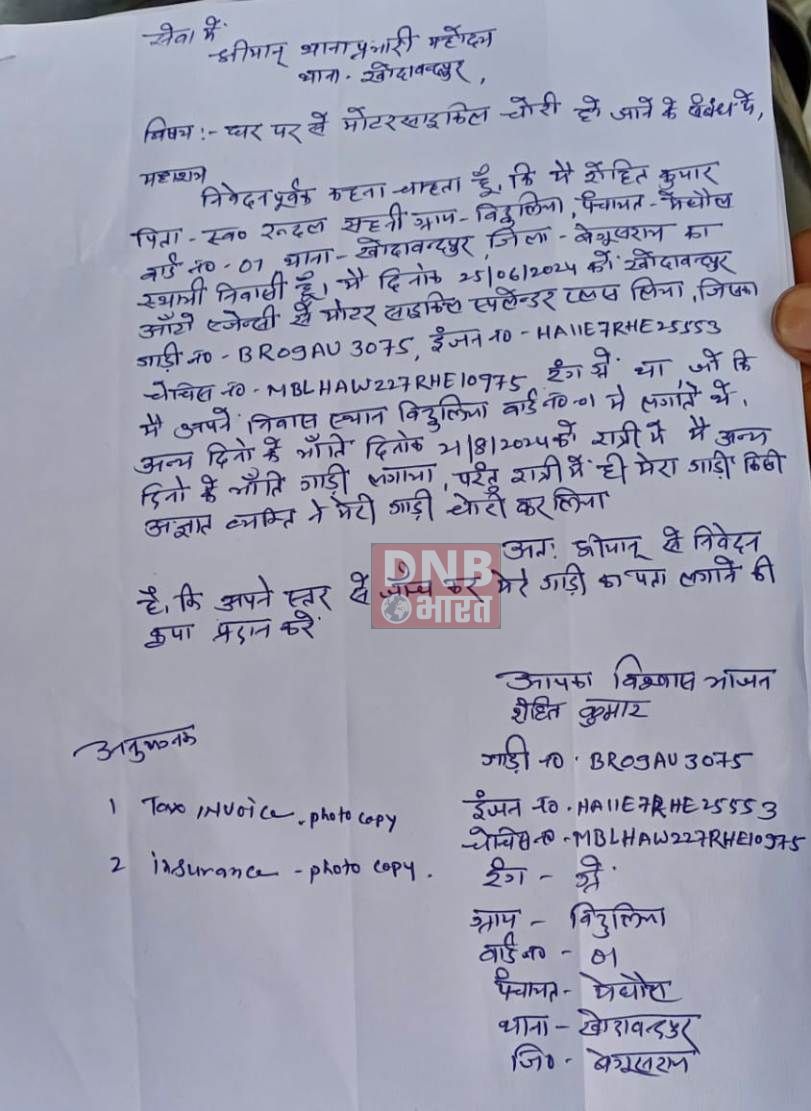 सेवा में
श्रीमान् थाना प्रभारी महोदय
थाना - खोदावन्दपुर,
विषय :- घर पर से मोटरसाइकिल चोरी हो जाने के संबंध में,
महाशय
निवेदन पूर्वक कहना चाहता हूँ, कि मै रोहित कुमार
पिता - स्व० रन्दल सहनी ग्राम - बिदुलिया, पंचायत - मेघौल
वार्ड न० - 01 थाना - खोदावन्दपुर, जिला - बेगूसराय का
स्थायी निवासी हूँ। मै दिनांक 25/06/2024 को खोदावन्दपुर
ऑटो एजेन्सी से मोटर साइकिल स्पलेन्डर प्लस लिया, जिसका
गाड़ी न० - BR09AU3075, इंजन न० - HA11E7RHE25553
चेचिस न० - MBLHAW227RHE10975 रंग ग्रे था, जो कि
मै अपने निवास स्थान बिदुलिया वार्ड न० - 01 मे लगाते थे,
अन्य दिनो के भाँति दिनांक 21/8/2024 को रात्री मे मै अन्य
दिनो के भाँति गाड़ी लगाया, परंतु रात्री में ही मेरा गाड़ी किसी
अज्ञात व्यक्ति ने मेरी गाड़ी चोरी कर लिया
अतः श्रीमान् से निवेदन
है, कि अपने स्तर से जाँच कर मेरे गाड़ी का पता लगाने की
कृपा प्रदान करें
DNB
भारत
आपका विश्वास भाजन
रोहित कुमार
अनुलग्नक
गाड़ी न० - BR09AU3075
1 Tax INVOICE - photo copy
इंजन न० - HA11E7RHE25553
चेचिस न० - MBLHAW227RHE10975
2 insurance - photo copy.
रंग - ग्रे
ग्राम - बिदुलिया
वार्ड न० - 01
पंचायत - मेघौल
थाना - खोदावन्दपुर
जि० - बेगूसराय